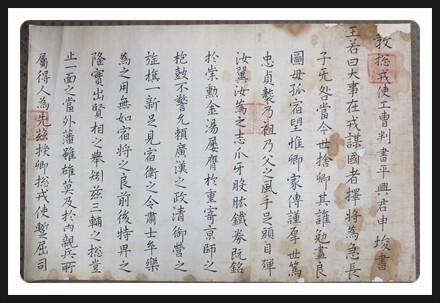 教摠戎使工曹判書平興君申埈書
王若曰大事在戎謀國者擇將為急長
子死各當今世捨卿其誰勉盡良
圖毋孤宿望惟卿家傳謹厚世篤
忠貞藝乃祖乃父之風手足頭目彈
汝翼汝為之志爪牙股肱鐵券既銘
於崇勲金湯屢膺於重寄京師之
枹鼓不警允賴廣漢之政清御營之
旌旗一新足見宿衛之令肅士卒樂
為之用無如宿將之良前後特畀之
隆實出賢相之擧玆三輔之摠豈
止一面之當外藩雖雄莫及於內親兵所
屬得人為先玆授卿摠戎使蹔屈司